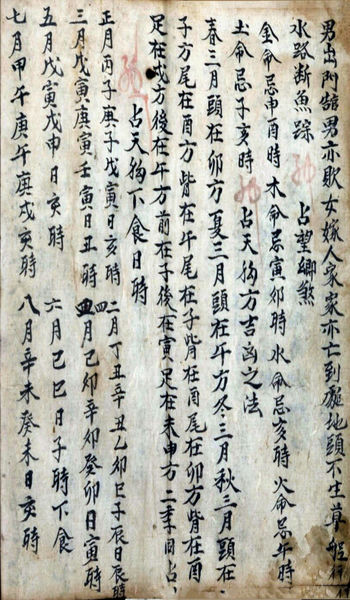 男出門館男亦敗女嫁人家家亦亡到處地頭不生草般行
水路断魚踪　占望鄉煞
金命忌申酉時木命忌寅夘時水命忌亥時火命忌午時
土命忌子亥時　占天狗方吉凶之法
春三月頭在卯方夏三月頭在午方冬三月秋三月頭在
子方尾在酉方背在午尾在子背在酉尾在卯方背在酉
足在戌方後在午方前在子後在寅足在未申方二季同占
占天狗下食日時
正月丙子庚子戊寅日亥時　二月丁丑辛丑乙卯巳子辰日辰時
三月戊寅庚寅壬寅日丑時　四月己卯辛卯癸卯日寅時
五月戊寅戊申日亥時　六月己巳日子時下食
七月甲午庚午庚戌亥時　八月辛未癸未日亥時